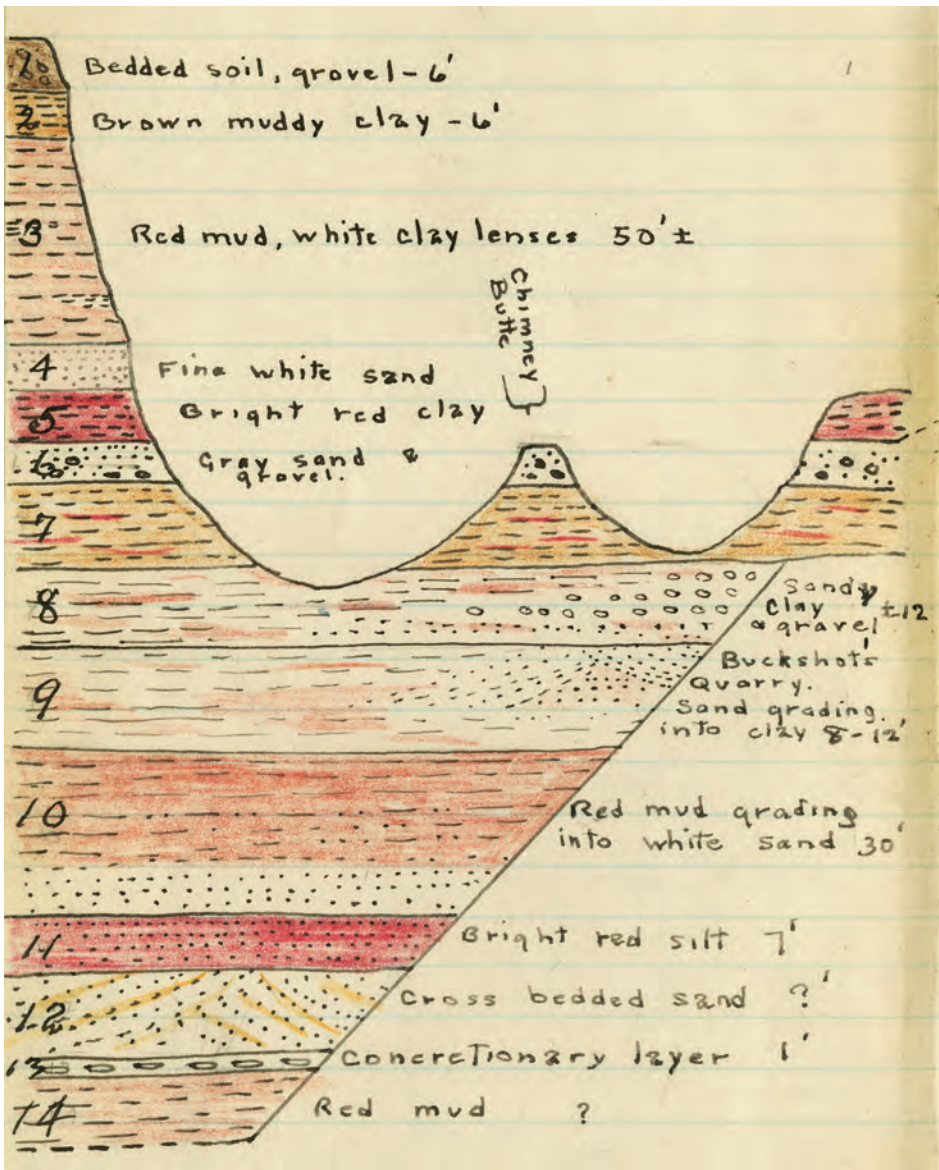 1
Bedded soil, gravel - 6'
2
Brown muddy clay - 6'
3
Red mud, white clay lenses 50' ±
Chimney
Butte
4
Fine white sand
5
Bright red clay
6
Gray sand &
gravel.
7
8
Sandy
Clay ±12
& gravel
9
Buckshot's
Quarry.
Sand grading
into clay 8-12'
10
Red mud grading
into white sand 30'
11
Bright red silt 7'
12
Cross bedded sand ?'
13
Concretionary layer 1'
14
Red mud ?